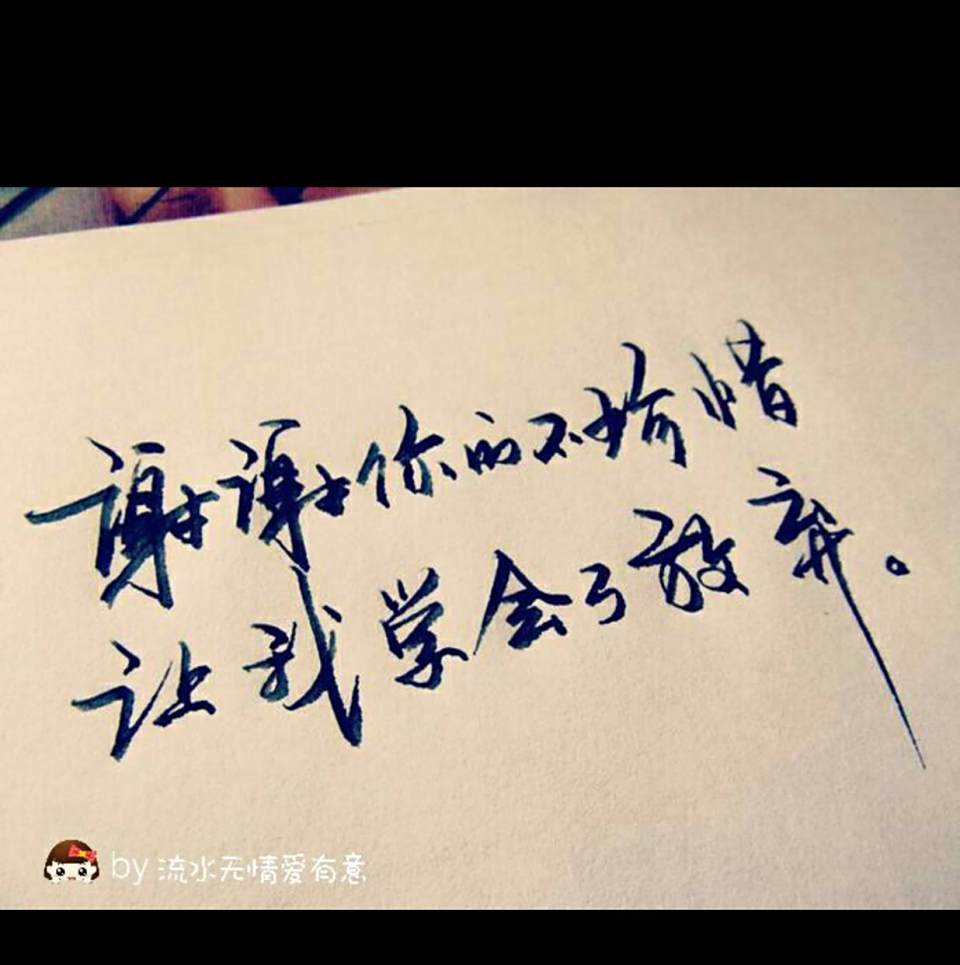 谢谢你的不珍惜
让我学会了放弃。
by 流水无情爱有意